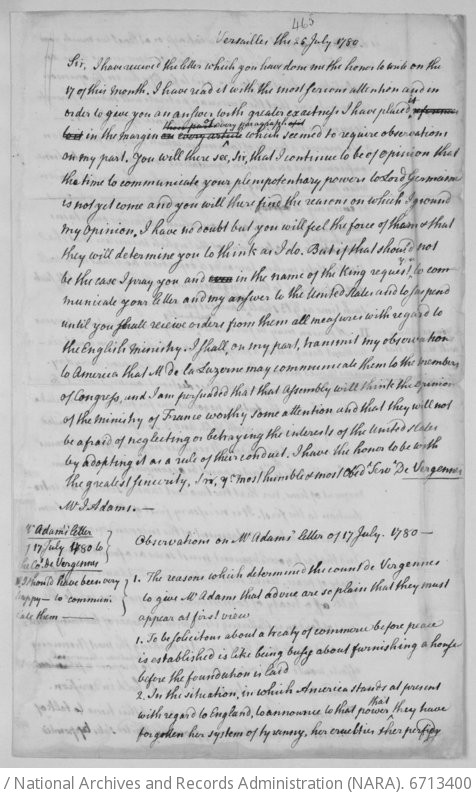 465
Versailles the 25 July 1780
Sir, I have received the letter which you have done me the honor to write on the
17 of this month. I have read it with the most serious attention and in
order to give you an answer with greater exactness I have placed it
in the margin every paragraph which seemed to require observations
on my part. You will there see, Sir, that I continue to be of opinion that
the time to communicate your plenipotentiary powers to Lord Germaine
is not yet come and you will there find the reasons on which I ground
my opinion. I have no doubt but you will feel the force of them & that
they will determine you to think as I do. But if that should not
be the case I pray you and even in the name of the King request you to com-
municate your letter and my answer to the United States and to suspend
until you shall receive orders from them all measures with regard to
the English ministry. I shall, on my part, transmit my observation
to America that M. de la Luzerne may communicate them to the members
of Congress, and I am persuaded that that Assembly will think the opinion
of the ministry of France worthy some attention and that they will not
be afraid of neglecting or betraying the interests of the United States
by adopting it as a rule of their conduct. I have the honor to be with
the greatest sincerity, Sir, &c most humble & most Obed. Serv. De Vergennes
Mr J. Adams. —
Mr Adams letter
of 17 July 1780 to
the Ct De Vergennes
I should have been very
happy — to communi
cate them —
Observations on Mr Adams' letter of 17 July. 1780 —
1. The reasons which determined the count de Vergennes
to give Mr Adams that advice are so plain that they must
appear at first view
1. To be solicitous about a treaty of commerce before peace
is established is like being busy about furnishing a house
before the foundation is laid
2. In the situation, in which America stands at present
with regard to England, to announce to that power that they have
forgotten her system of tyranny, her cruelties & her perfidy
/ National Archives and Records Administration (NARA). 6713400